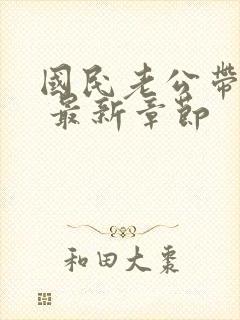 國民老公帶
最新章節
和田大棗